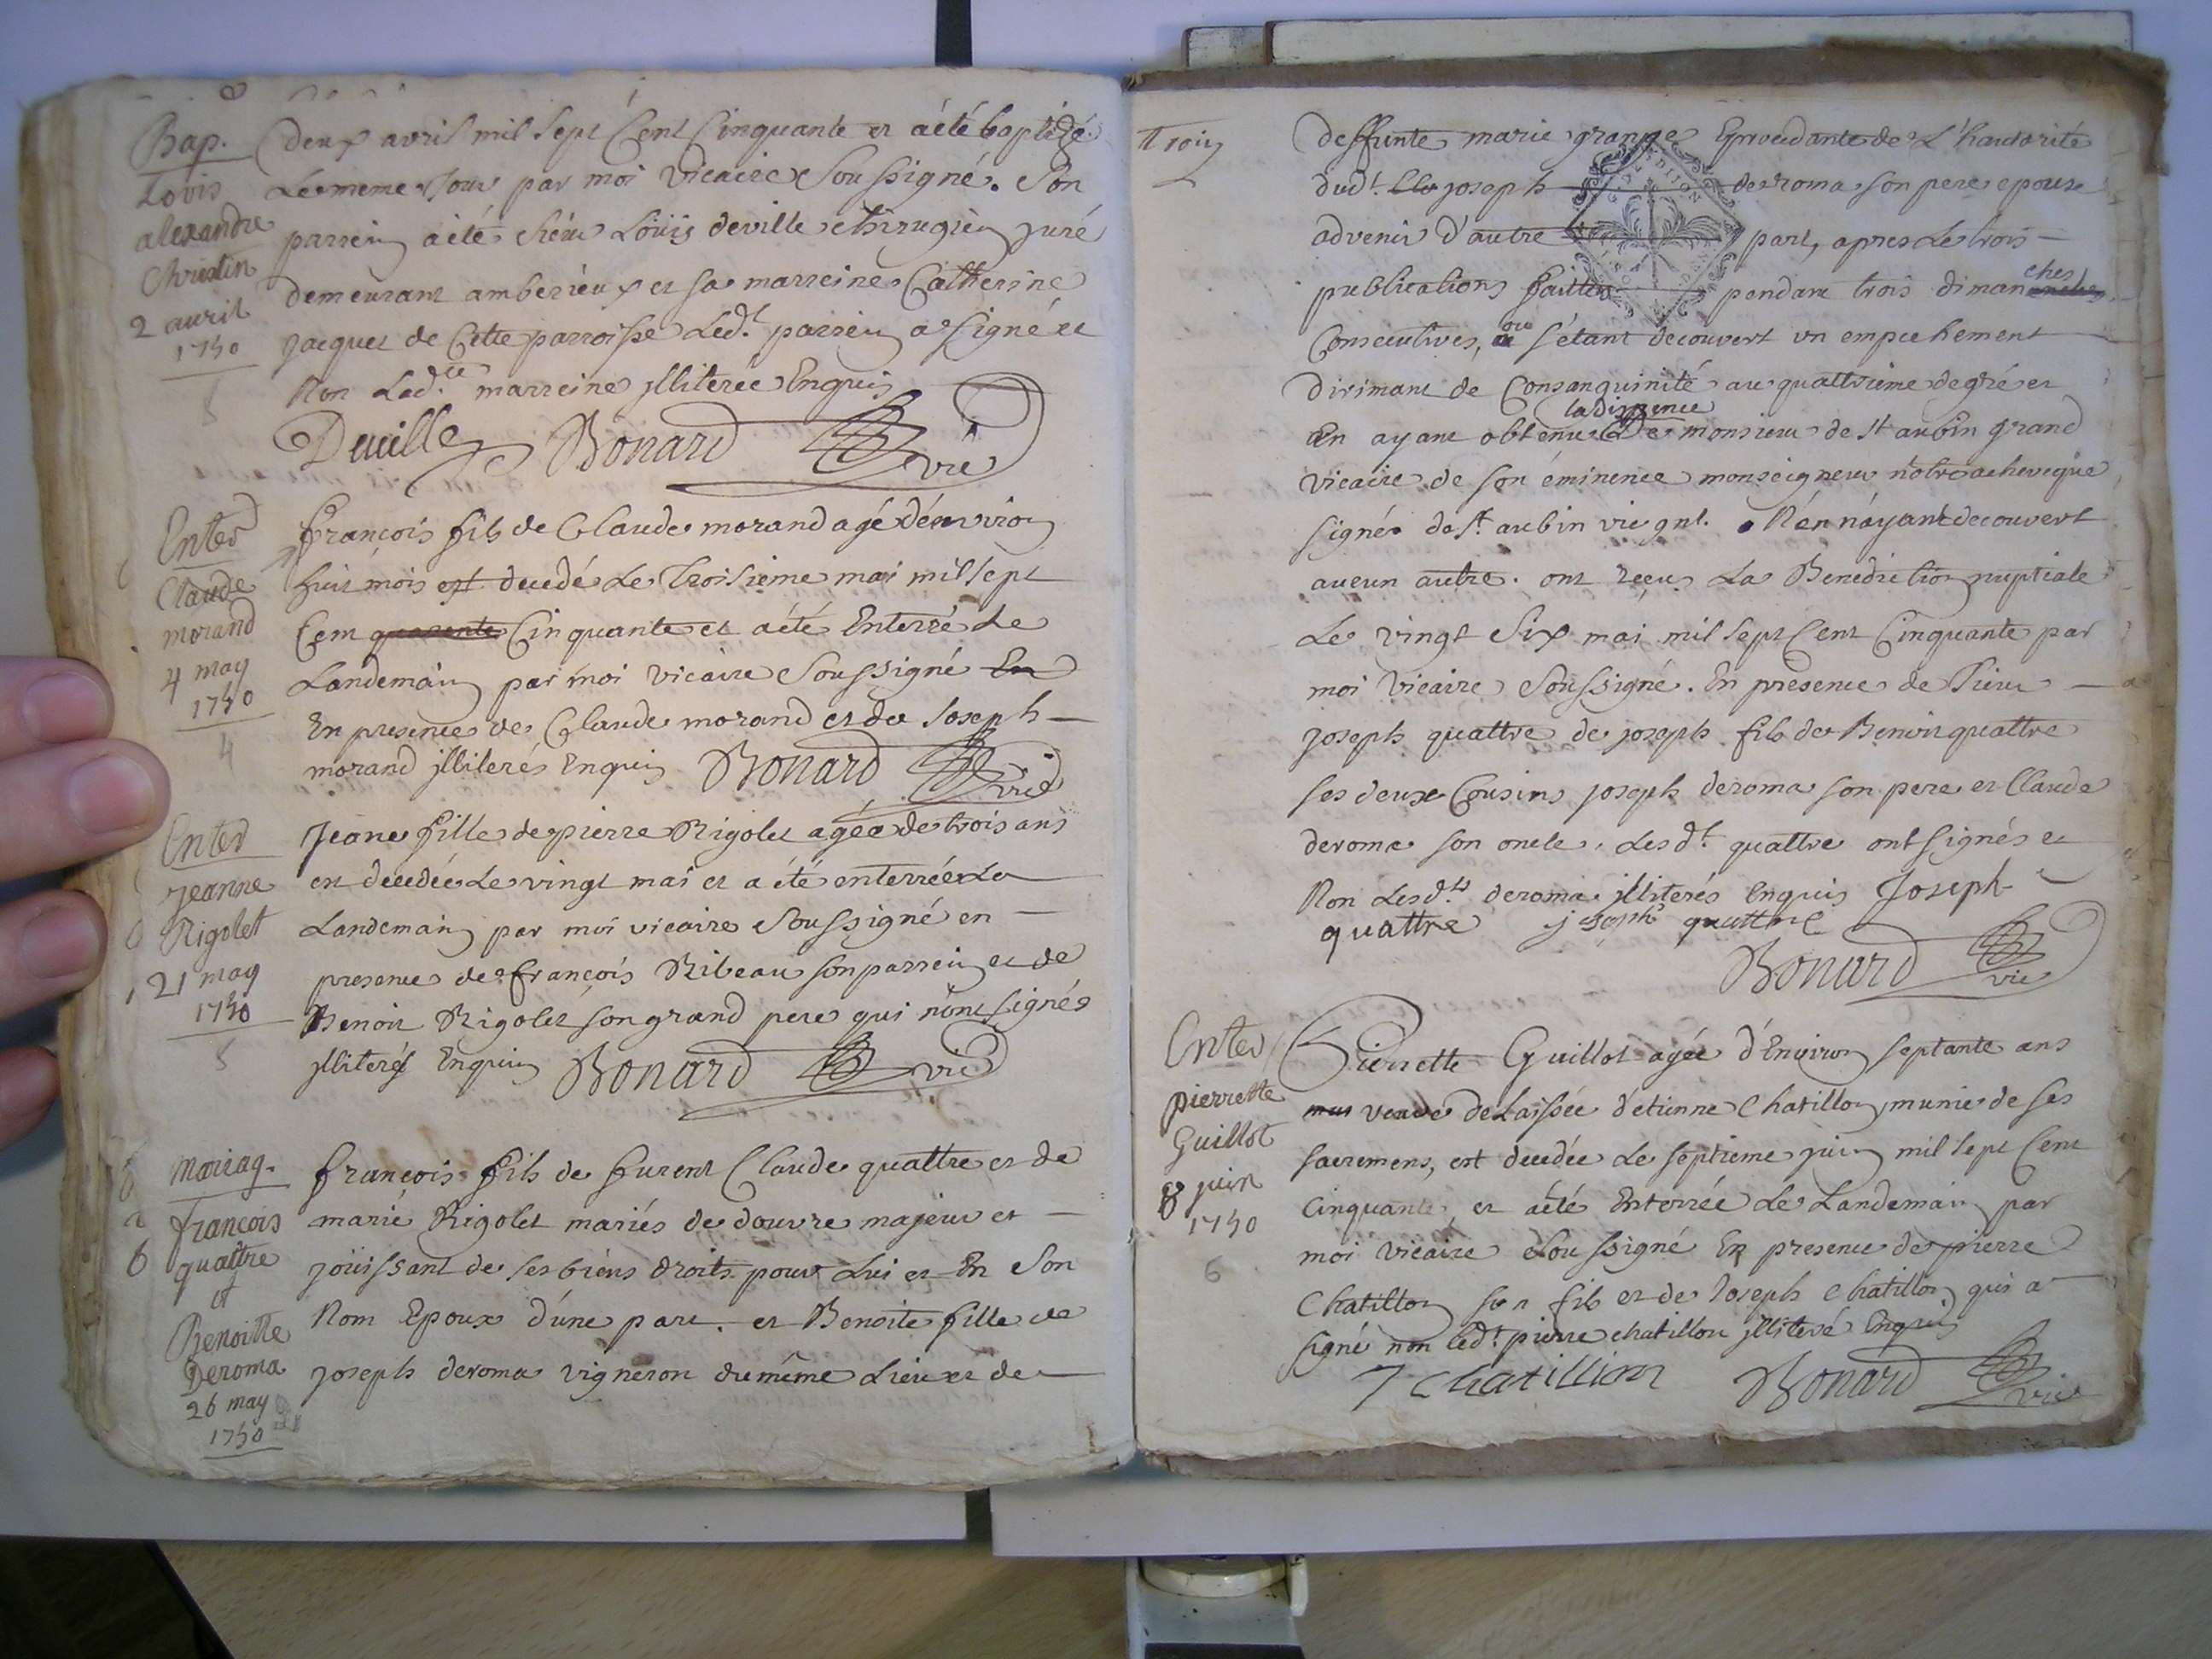 Bap.
Lovis
alexandre
Christin
2 avril
1750
Deux avril mil sept Cent Cinquante et a été baptisé
Le meme jour par moi vicaire soussigné. Son
parrein a été sieur Loüis deville chirugien juré
demeurant amberieux et sa marreine Catherine
jacquet de Cette parroisse Ledt. parrein a signé et
Non Ladte. marreine jlliterée Enquis
Deville Bonard vic
Enter
Claude
morand
4 may
1750
4
françois fils de Claude morand agé d'environ
huit mois est decedé Le troisieme mai mil sept
Cent quarente Cinquante et a été Enterré Le
Landemain par moi vicaire soussigné En
En presence de Claude morand et de Joseph
morand jlliterés Enquis Bonard vic
Enter
jeanne
Rigolet
21 may
1750
5
Jeane fille de pierre Rigolet agée de trois ans
est decedée Le vingt mai et a été enterrée Le
Landemain par moi vicaire soussigné en
presence de françois Ribeau son parrein et de
Benoit Rigolet son grand pere qui n'ont signés
jlliterés Enquis Bonard vic
mariag.
françois
quattre
et
Benoitte
Deroma
26 may
1750
françois fils de furent Claude quattre et de
marie Rigolet mariés de douvre majeur et
joüissant de ses biens droits pour Lui et En son
Nom Epoux d'une part. et Benoite fille de
joseph deroma vigneron du même Lieu et de
Trois
deffunte marie grange Eprocedante de L'hautorité
dudt. Clo joseph de roma son pere epouse
advenir d'autre part, apres Le trois
publications faittes pendant trois dimanches
Consecutives, ou s'étant decouvert un empechement
dirimant de Consanguinité au quattrieme degré et
En ayant obtenu la dispence De monsieur de st aubin grand
vicaire de son éminence monseigneur notre acheveque
signée de st. aubin vic gnl. N'en n'ayant decouvert
aucun autre. ont reçu La Benediction nuptiale
Le vingt six mai mil sept Cent Cinquante par
moi vicaire soussigné. En présence de Sieur
joseph quattre de joseph fils de Benoit quattre
ses deux Cousins joseph deroma son pere et Claude
deroma son oncle. Lesdt. quattre ont signés et
Non Lesdts. deroma jlliterés Enquis Joseph
quattre joseph quattre
Bonard vic
Enter
pierrette
Guillot
8 juin
1750
6
Pierrette Guillot agée d'Environ septante ans
veuve deLaissée d'etienne Chatillon munie de ses
sacremens, est decedée Le septieme juin mil sept Cent
Cinquante, et a été Enterrée Le Landemain par
moi vicaire soussigné En presence de pierre
Chatillon son fils et de Joseph Chatillon qui a
signé non Ledt. pierre chatillon jlliteré Enquis
J Chatillion Bonard vic